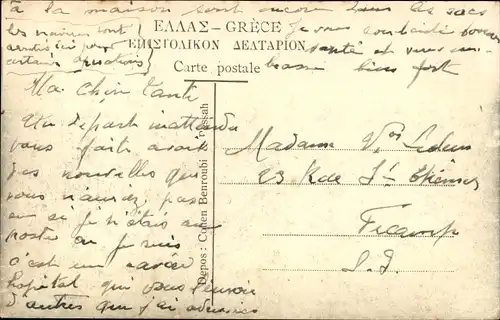 à la maison sont encore tous les sacs
les navires sont
avertis ici pour
certaines opérations
ΕΛΛΑΣ – GRÈCE
ΕΠΙΣΤΟΛΙΚΟΝ ΔΕΛΤΑΡΙΟΝ
Carte postale
Je vous souhaite bonne
santé et vous em-
brasse bien fort
Ma Chère Tante
Un départ inattendu
vous fait avoir
des nouvelles que
vous n'auriez pas
eu si je n'étais au
poste où je suis
c'est un
hôpital qui vous l'envoie
d'autres que j'ai
Depos: Cohen Benroubi Pessah
Madame Vve
23 Rue St Etienne
Fécamp
S. I.